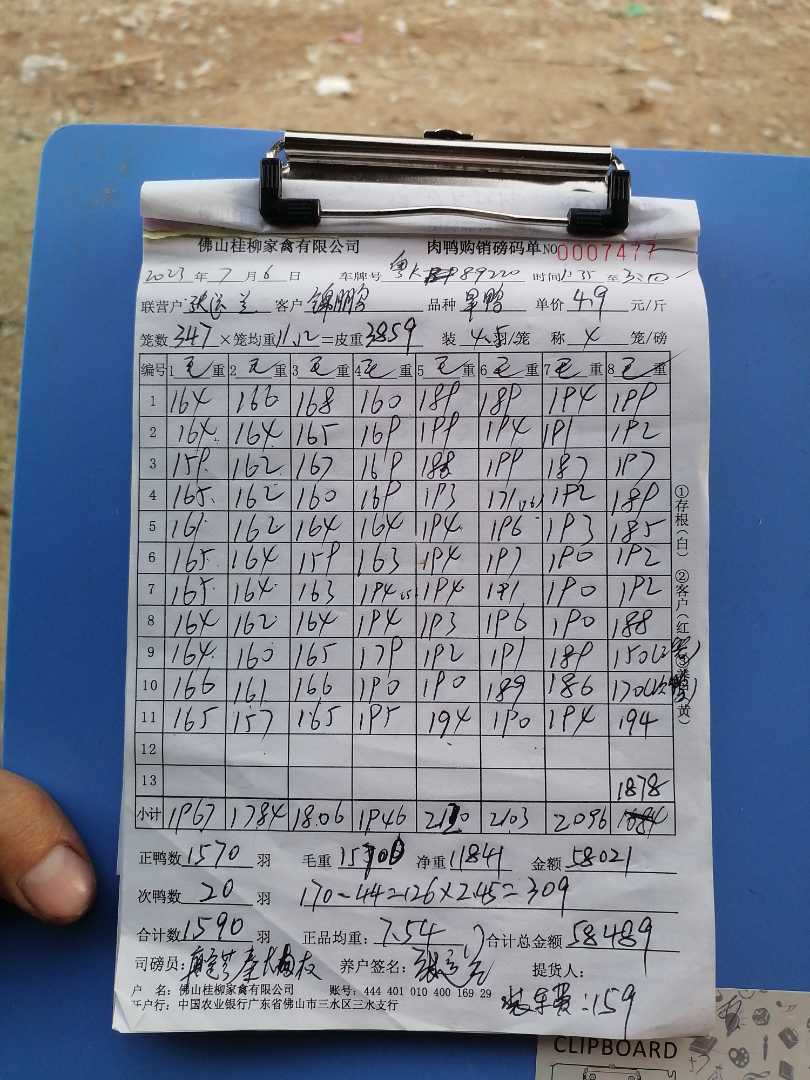 佛山桂柳家禽有限公司 肉鸭购销磅码单 NO 0007477
2023 年 7 月 6 日 车牌号 粤K 89220 时间 1:35 至
联营户 客户 锦鹏 品种 旱鸭 单价 4.9 元/斤
笼数 347 ×笼均重 11.12 =皮重 3859 装 4.5 羽/笼 称 4 笼/磅
编号 1 毛 重 2 毛 重 3 毛 重 4 毛 重 5 毛 重 6 毛 重 7 毛 重 8 毛 重
1 164 166 168 160 189 189 194 199
2 164 164 165 169 199 194 191 192
3 159 162 167 169 188 199 187 197
4 165 162 160 169 193 171 192 189
5 161 162 164 164 194 196 193 185
6 165 164 159 163 194 197 190 192
7 165 164 163 194 194 191 190 192
8 164 162 164 194 193 196 190 188
9 164 160 165 179 192 191 189 150
10 166 161 166 190 190 189 186 170
11 165 157 165 195 194 190 194 194
12
13 1878
小计 1967 1784 1806 1946 2120 2103 2096
正鸭数 1570 羽 毛重 15700 净重 11841 金额 58021
次鸭数 20 羽 170-44=126×2.45=309
合计数 1590 羽 正品均重: 7.54 合计总金额 58489
司磅员: 养户签名: 提货人:
户 名: 佛山桂柳家禽有限公司 账号: 444 401 010 400 169 29
开户行: 中国农业银行广东省佛山市三水区三水支行
装车费:159
①存根(白) ②客户(红) 黄)
CLIPBOARD